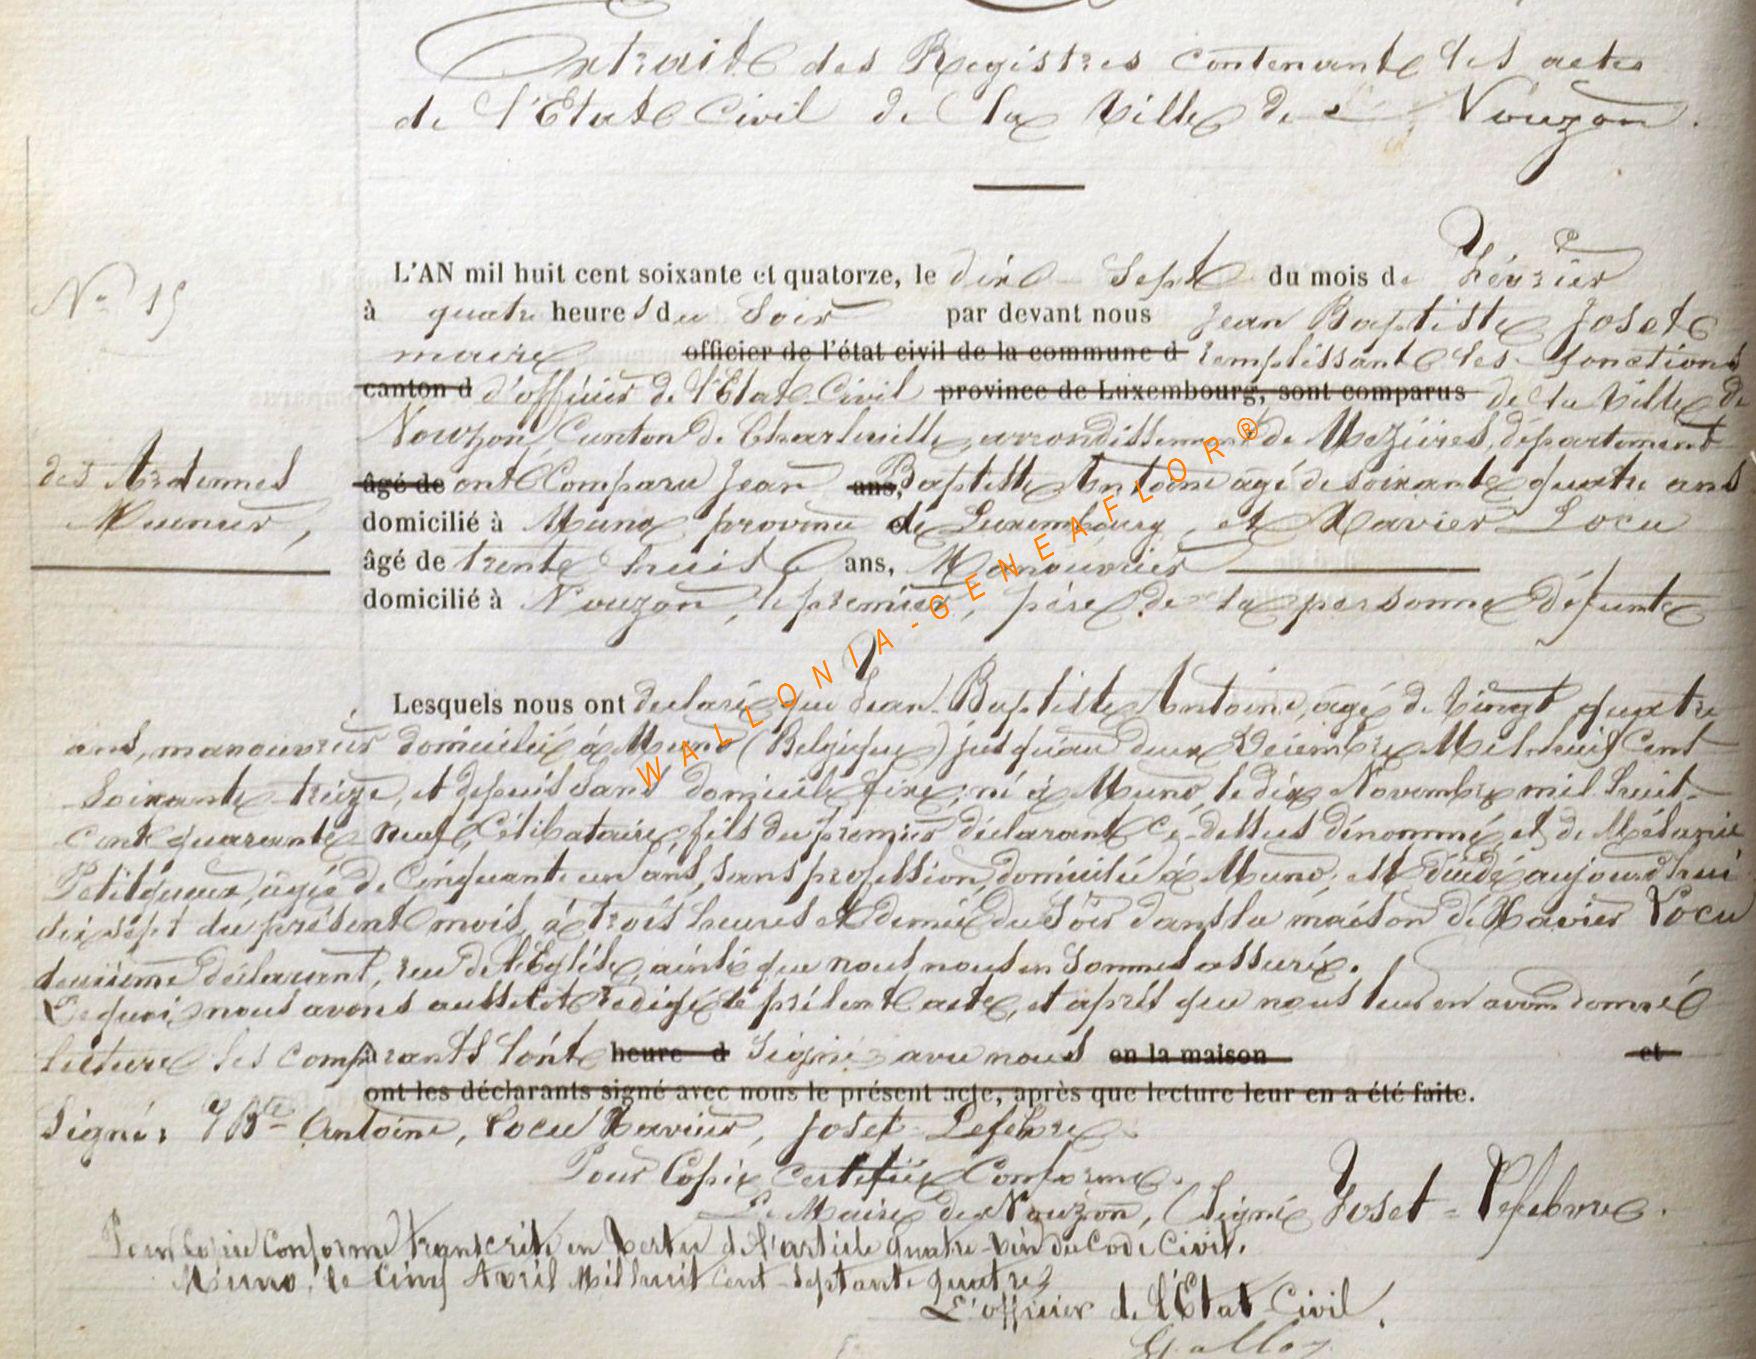 Extrait des Registres contenant les actes
de l'Etat Civil de la Ville de Nouzon.
L'AN mil huit cent soixante et quatorze, le dix Sept du mois de Février
N° 15
à quatre heures du Soir par devant nous Jean Baptiste Joset
maire officier de l'état civil de la commune d remplissant les fonctions
canton d d'officier de l'Etat Civil province de Luxembourg, sont comparus de la Ville de
Nouzon, Canton de Charleville, arrondissement de Mezières, département
des Ardennes âgé de ont Comparu Jean ans, Baptiste Antoine âgé de soixante quatre ans
domicilié à Muno province de Luxembourg, et Xavier Pocu
âgé de trente huit ans, Manouvrier
domicilié à Nouzon, le premier, père de la personne défunte
Lesquels nous ont déclaré que Jean Baptiste Antoine, âgé de Vingt quatre
ans, manouvrier domicilié à Muno (Belgique) jusqu'au deux Décembre Mil huit Cent
Soixante treize, et depuis Sans domicile fixe; né à Muno, le dix Novembre mil huit
cent quarante neuf, Célibataire, fils du premier déclarant ci-dessus dénommé, et de Mélanie
Petitqueux, âgée de Cinquante un ans, sans profession, domiciliée à Muno; est décédé aujourd'hui
dix sept du présent mois, à trois heures et demie du Soir dans la maison de Xavier Pocu
deuxième déclarant, rue de l'Eglise, ainsi que nous nous en sommes assuré.
De quoi nous avons aussitôt rédigé le présent acte, et après que nous leur en avons donné
lecture les comparants l'ont heure d Signé avec nous en la maison et
ont les déclarants signé avec nous le présent acte, après que lecture leur en a été faite.
Signé: J Bte Antoine, Pocu Xavier, Joset-Lefebvre
Pour Copie Certifiée Conforme.
Le Maire de Nouzon, (Signé) Joset-Lefebvre.
Pour Copie Conforme transcrite en Vertu de l'article quatre-vingt du Code Civil.
Muno, le Cinq Avril Mil huit cent septante quatre
L'officier de l'Etat Civil,
WALLONIA-GENEAFLOR®